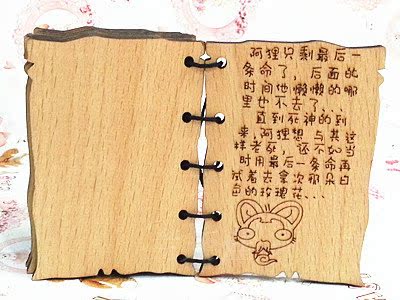 阿狸只剩最后一
条命了，后面的
时间他懒懒的哪
里也不去了...
直到死神的到
来，阿狸想 与其这
样老死，还不如当
时用最后一条命再
试着去拿次那朵白
色的玫瑰花...